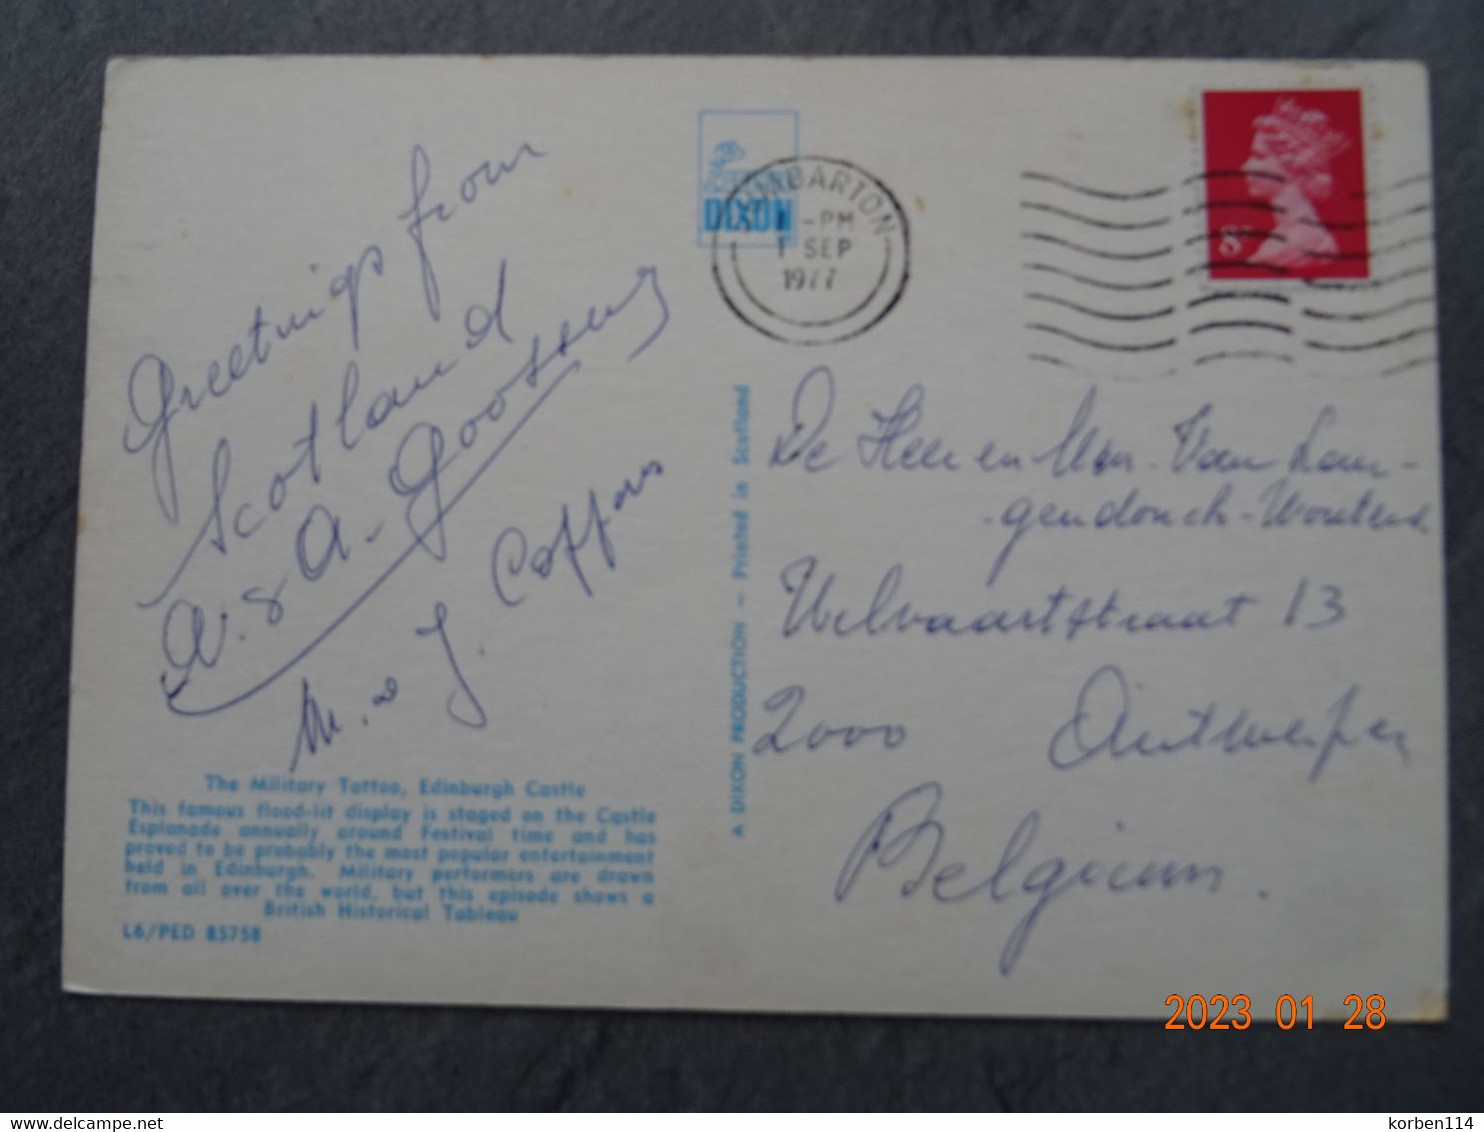 Greetings from
Scotland
A. & A. Goossens
M. & J. Coppens
The Military Tattoo, Edinburgh Castle
This famous flood-lit display is staged on the Castle
Esplanade annually around Festival time and has
proved to be probably the most popular entertainment
held in Edinburgh. Military performers are drawn
from all over the world, but this episode shows a
British Historical Tableau
L6/PED 85758
A DIXON PRODUCTION — Printed in Scotland
DIXON
DUMBARTON
-PM
1 SEP
1977
8P
De Heer en Mevr. Van Lan-
-gendonck-Wouters
Welvaartstraat 13
2000 Antwerpen
Belgium.
2023 01 28
korben114